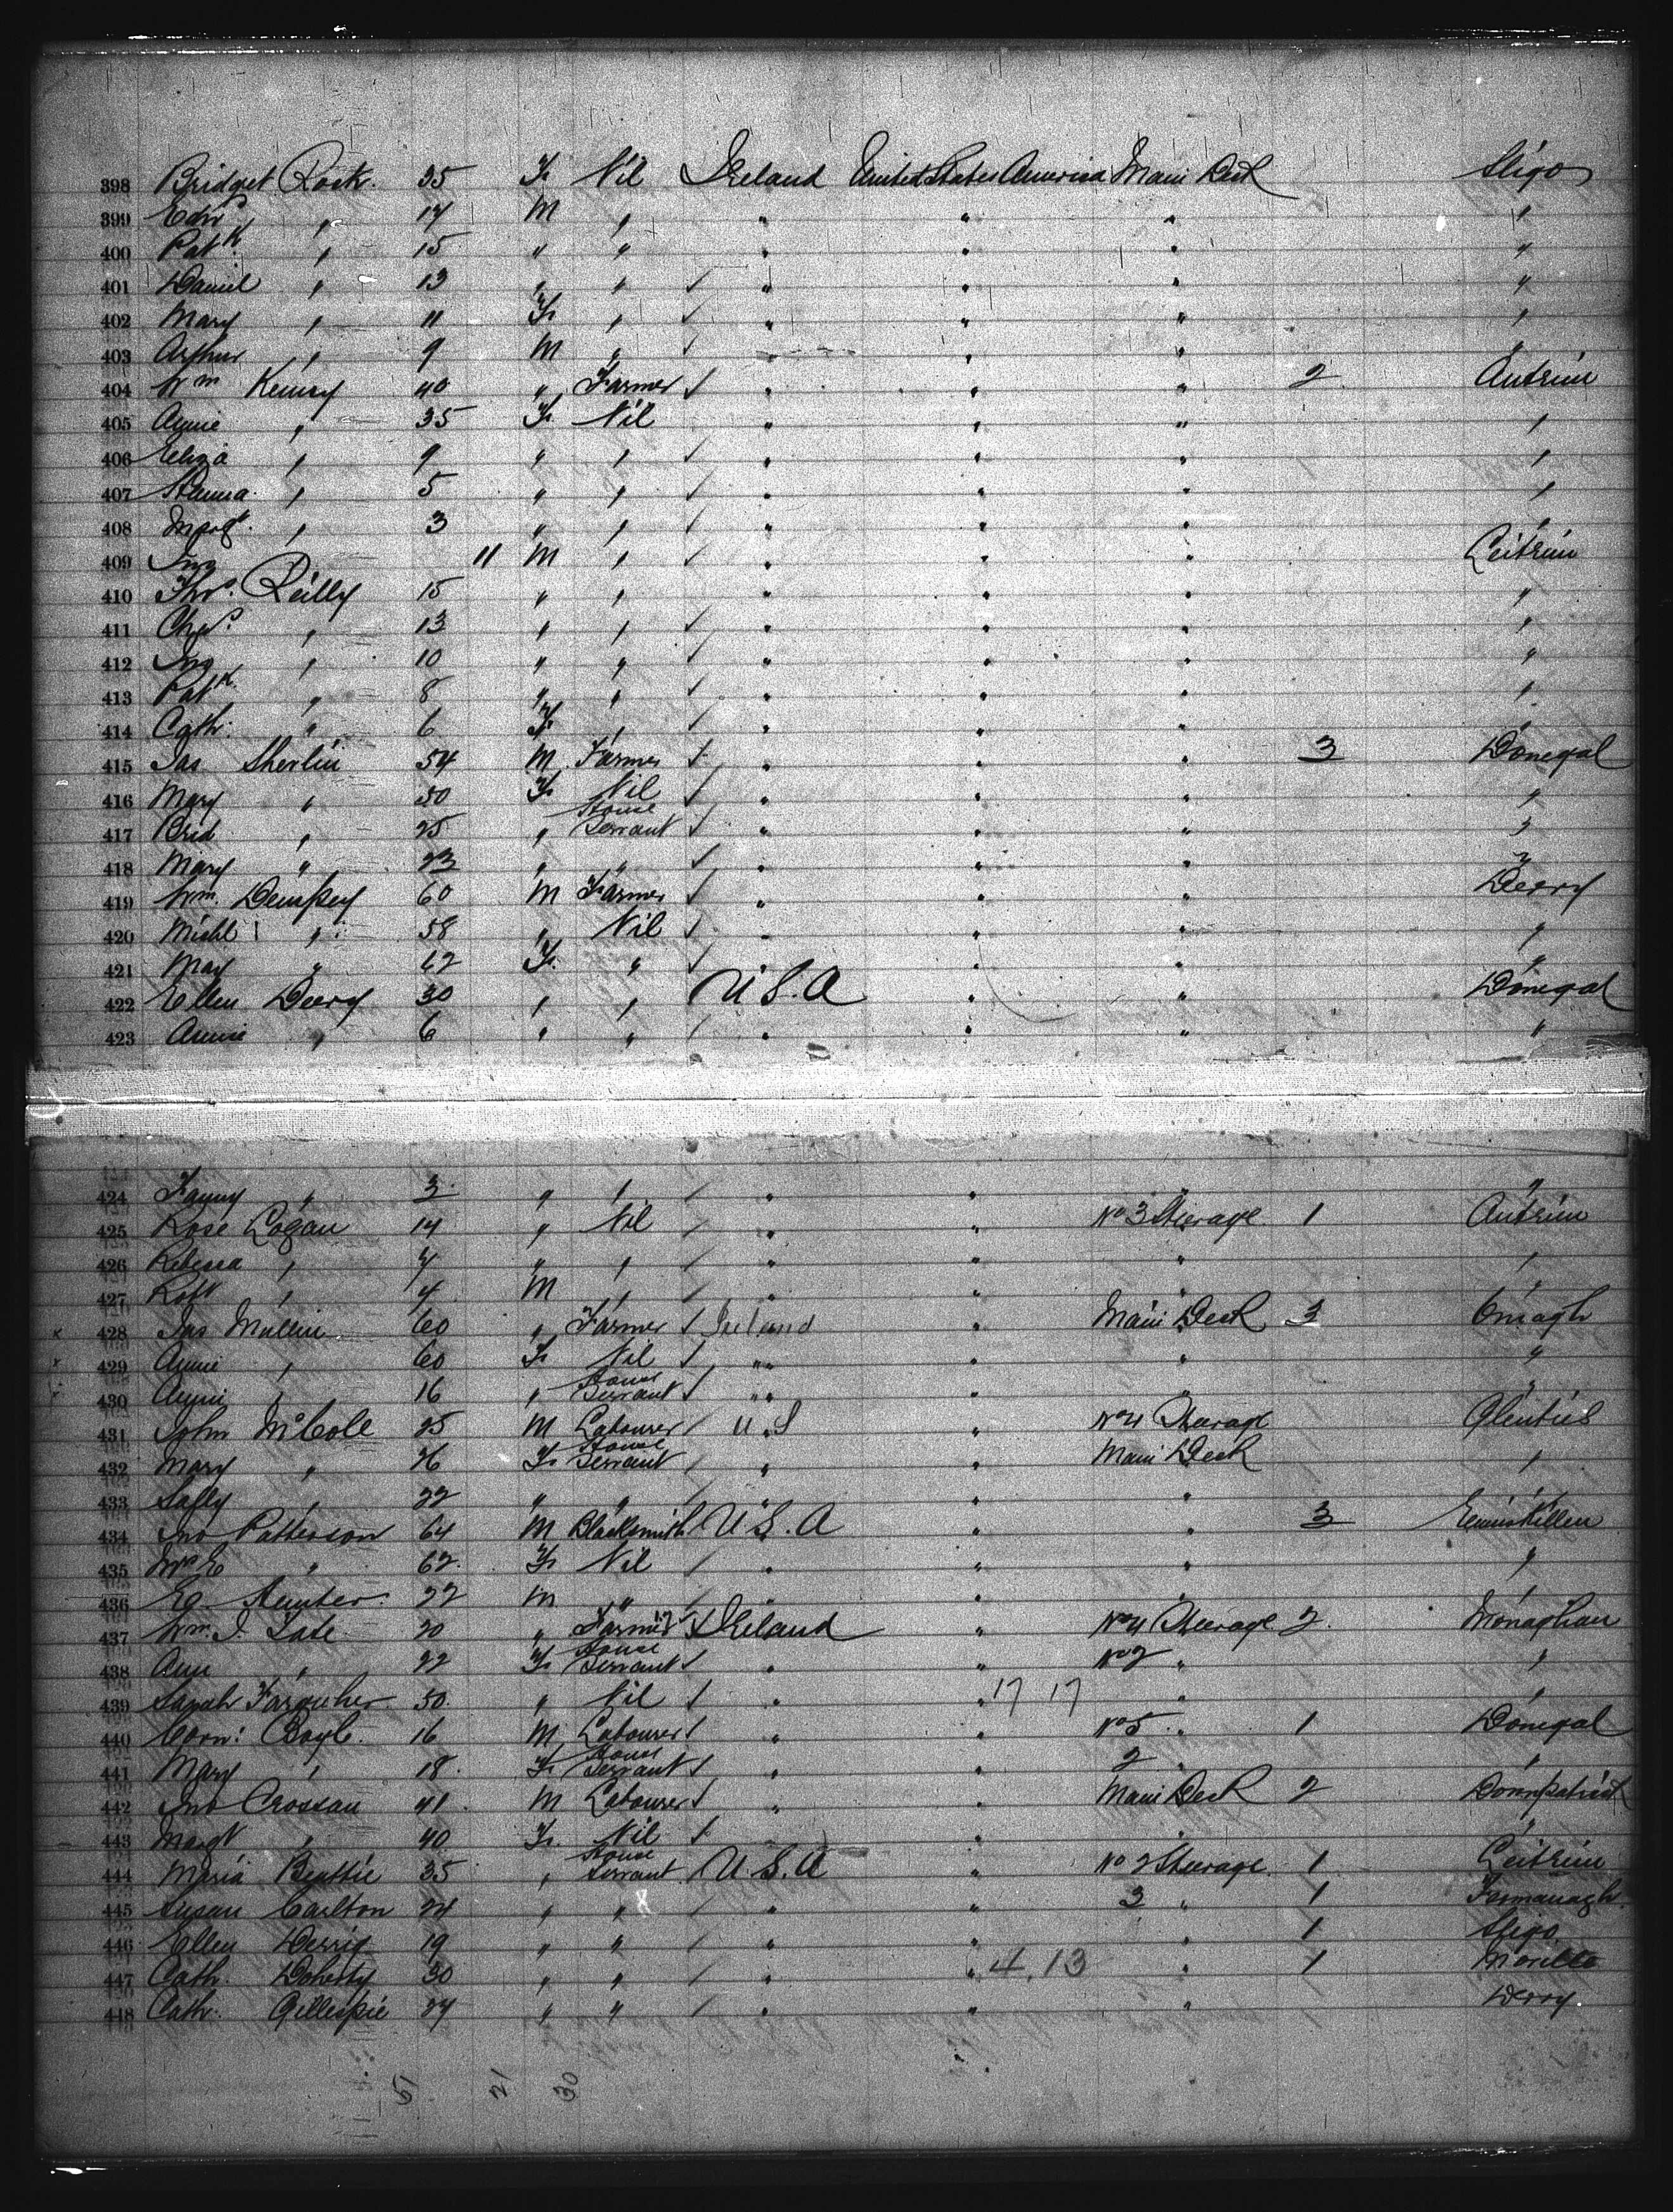 398 Bridget Rock. 35 F Nil Ireland United States America Main Deck Sligo
399 Edwd " 17 M " " " " "
400 Patk " 15 " " " " " "
401 Daniel " 13 " " ✓ " " " "
402 Mary " 11 F " ✓ " " " "
403 Arthur " 9 M " ✓ " " " "
404 Wm Kenney 40 " Farmer ✓ " " " 2 Antrim
405 Annie " 35 F Nil " " " "
406 Eliza " 9 " " ✓ " " " "
407 " 5 " " ✓ " " " "
408 Margt. " 3 " " ✓ " " " "
409 Jno 11 M " ✓ " " " Leitrim
410 Thos. Reilly 15 " " " " " "
411 Chas. " 13 " " ✓ " " " "
412 Jno " 10 " " ✓ " " " "
413 Patk. " 8 " " ✓ " " " "
414 Cath. " 6 F " ✓ " " " "
415 Jas Sherlin 54 M Farmer ✓ " " " 3 Donegal
416 Mary " 50 F Nil ✓ " " " "
417 Brid " 25 " House Servant ✓ " " " "
418 Mary " 23 " " ✓ " " " "
419 Wm. Dempsey 60 M Farmer ✓ " " " Derry
420 Michl " 58 " Nil ✓ " " " "
421 May " 62 F. " ✓ " " "
422 Ellen Deery 30 " " U.S.A " " Donegal
423 Annie " 6 " " ✓ " " " "
424 Fanny " 3 " " ✓ " " " "
425 Rose Logan 14 " Nil ✓ " " No 3 Steerage 1 Antrim
426 Rebecca " 7 " " ✓ " " " "
427 Robt " 4 M " ✓ " " " "
428 Jas Mullin 60 " Farmer ✓ Ireland " Main Deck 3 Omagh
429 Annie " 60 F Nil ✓ " " " "
430 Annie " 16 " House Servant ✓ " " " "
431 John McCole 25 M Labourer ✓ U.S " No 4 Steerage Glenties
432 Mary " 26 F House Servant ✓ " " Main Deck "
433 Sally " 22 " " ✓ " " " "
434 Jno Patterson 64 M Blacksmith U.S.A " " 3 Enniskillen
435 Mrs E " 62 F Nil ✓ " " " "
436 E Hunter 22 M " ✓ " " " "
437 Wm. J. Tate 20 " Farmer ✓ Ireland " No 4 Steerage 2 Monaghan
438 Ann " 22 F House Servant ✓ " " No 2 " "
439 Sarah Farquher 50 " Nil ✓ " " 17 17 " "
440 Corn: Boyle 16 M Labourer ✓ " " No 5 " 1 Donegal
441 Mary " 18 F House Servant ✓ " " 2 "
442 Jno Crossan 41 M Labourer ✓ " " Main Deck 2 Downpatrick
443 Margt " 40 F. Nil ✓ " " " "
444 Maria Beattie 35 " House Servant U.S.A " No 2 Steerage 1 Leitrim
445 Susan Carlton 24 " " ✓ " " 3 " 1 Fermanagh
446 Ellen Derrig 19 " " ✓ " " " 1 Sligo
447 Cath. Doherty 30 " " ✓ " " 4.13 " 1 Moville
448 Cath. Gillespie 27 " " ✓ " " " Derry
51 21 30